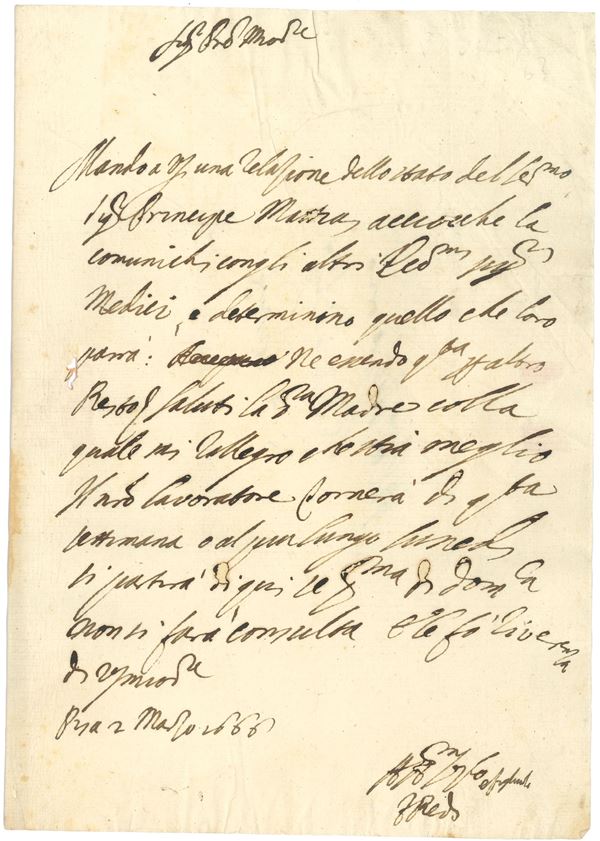 Sig.r Pre Mio
Mando a VS una relazione dello stato del Ser.mo
Sig.r Principe Mattias accioche la
comunichi con gli altri SS.ri
Medici, e determinino quello che loro
parrà: Ne essendo q.ta p altro
Resto, saluti la S.ra Madre colla
quale mi rallegro che stia meglio
Il n.ro lavoratore tornerà di q.ta
settimana o al piu lungo lunedi
si partirà di qui se p.ma di dom.ca
non si farà consulta e le fo river.za
di
Pisa 2 Marzo 1666
F Redi